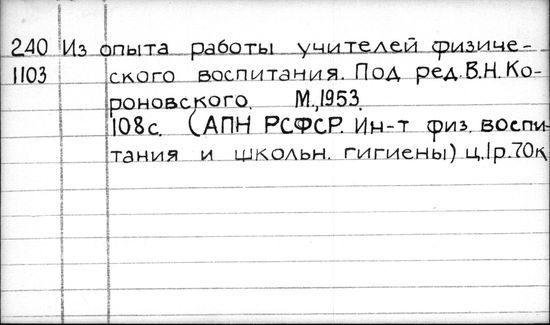 240 Из опыта работы учителей физиче-
1103 ского воспитания. Под ред. В.Н. Ко-
роновского. М., 1953.
108 с. (АПН РСФСР. Ин-т физ. воспи-
тания и школьн. гигиены) ц. 1р. 70к